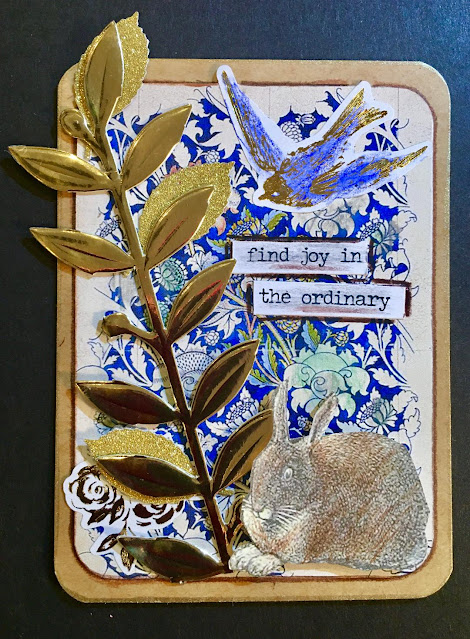 find joy in
the ordinary